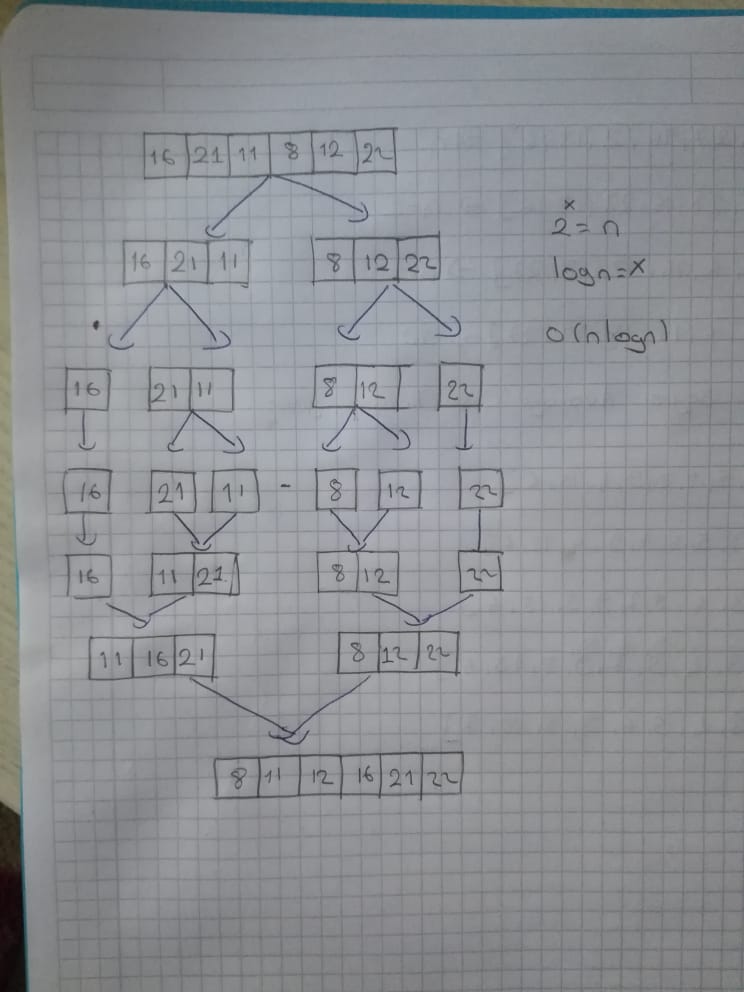 16 21 11 8 12 22
2^x = n
16 21 11 8 12 22
log n = x
O(n log n)
16 21 11 8 12 22
16 21 11 - 8 12 22
16 11 21 8 12 22
11 16 21 8 12 22
8 11 12 16 21 22